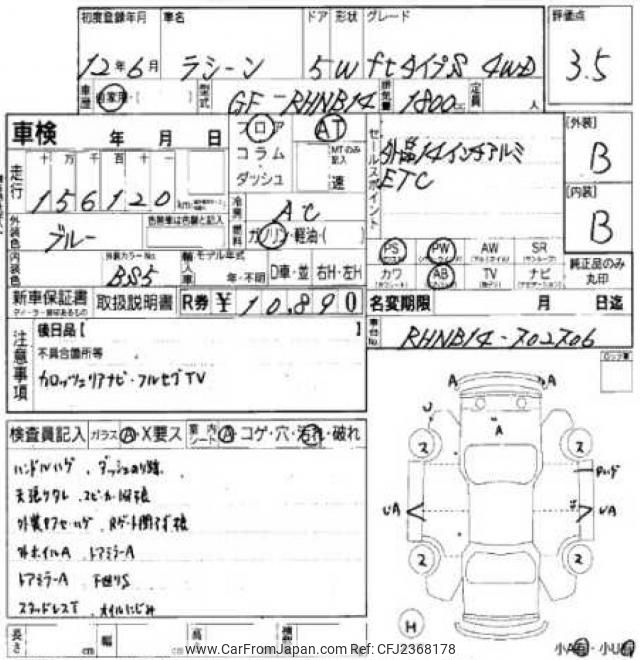 初度登録年月 車名 ドア 形状 グレード 評価点
12年6月 ラシーン 5 W ftタイプS 4WD 3.5
車歴 自家用・( ) 型式 GF-RHNB14 排気量 1800cc 定員 人
車検 年 月 日 フロア AT セールスポイント [外装]
走行 十 万 千 百 十 一 コラム MTのみ記入 外品14インチアルミ B
156120 km ダッシュ 速 ETC
外装色 ブルー 色替車は色替と記入 冷房 AC [内装]
燃料 ガソリン・軽油・( ) B
内装色 外装カラーNo. BS5 輸入車 モデル年式 年・不明 D車・並 右H・左H
PS PW AW SR 純正品のみ丸印
カワ AB TV ナビ
新車保証書 取扱説明書 R券 ¥10,890 名変期限 月 日迄
注意事項 後日品[ ] 車台No. RHNB14-702706
不具合箇所等
カロッツェリアナビ・フルセグTV
検査員記入 ガラス A・X要ス 室内シート A・コゲ・穴・汚れ・破れ
ハンドルハゲ、ダッシュのり跡
天張りタレ、スピーカー
外ホイルA ドアミラーA
ドアミラーA 下廻りS
スタッドレスT オイルにじみ
長さ cm 幅 cm 高 cm
A A
A
U
2 2
UA UA
ハゲ
2 2
H
小A 小U
www.CarFromJapan.com Ref: CFJ2368178